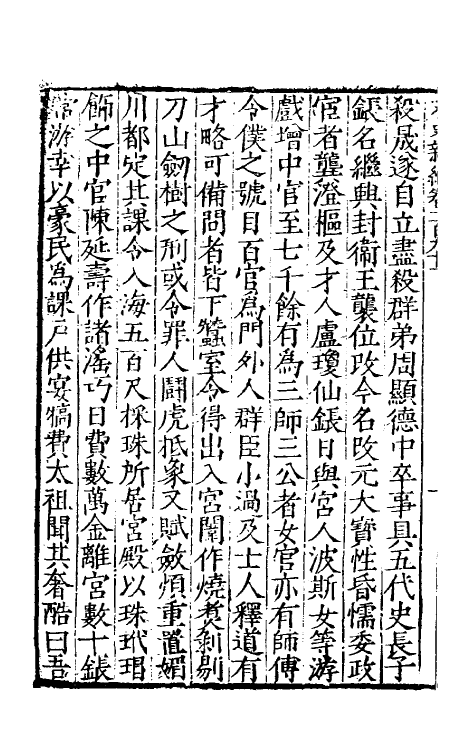 殺晟遂自立盡殺群弟周顯德中卒事具五代史長子
鋹名繼興封衛王襲位改今名改元大寶性昏懦委政
宦者龔澄樞及才人盧瓊仙鋹日與宮人波斯女等游
戲增中官至七千餘有為三師三公者女官亦有師傅
令僕之號目百官為門外人群臣小過及士人釋道有
才略可備問者皆下蠶室令得出入宮闈作燒煑剝剔
刀山劒樹之刑或令罪人鬪虎抵象又賦斂煩重置媚
川都定其課令入海五百尺採珠所居宮殿以珠玳瑁
飾之中官陳延壽作諸淫巧日費數萬金離宮數十鋹
常游幸以豪民為課户供宴犒費太祖聞其奢酷曰吾